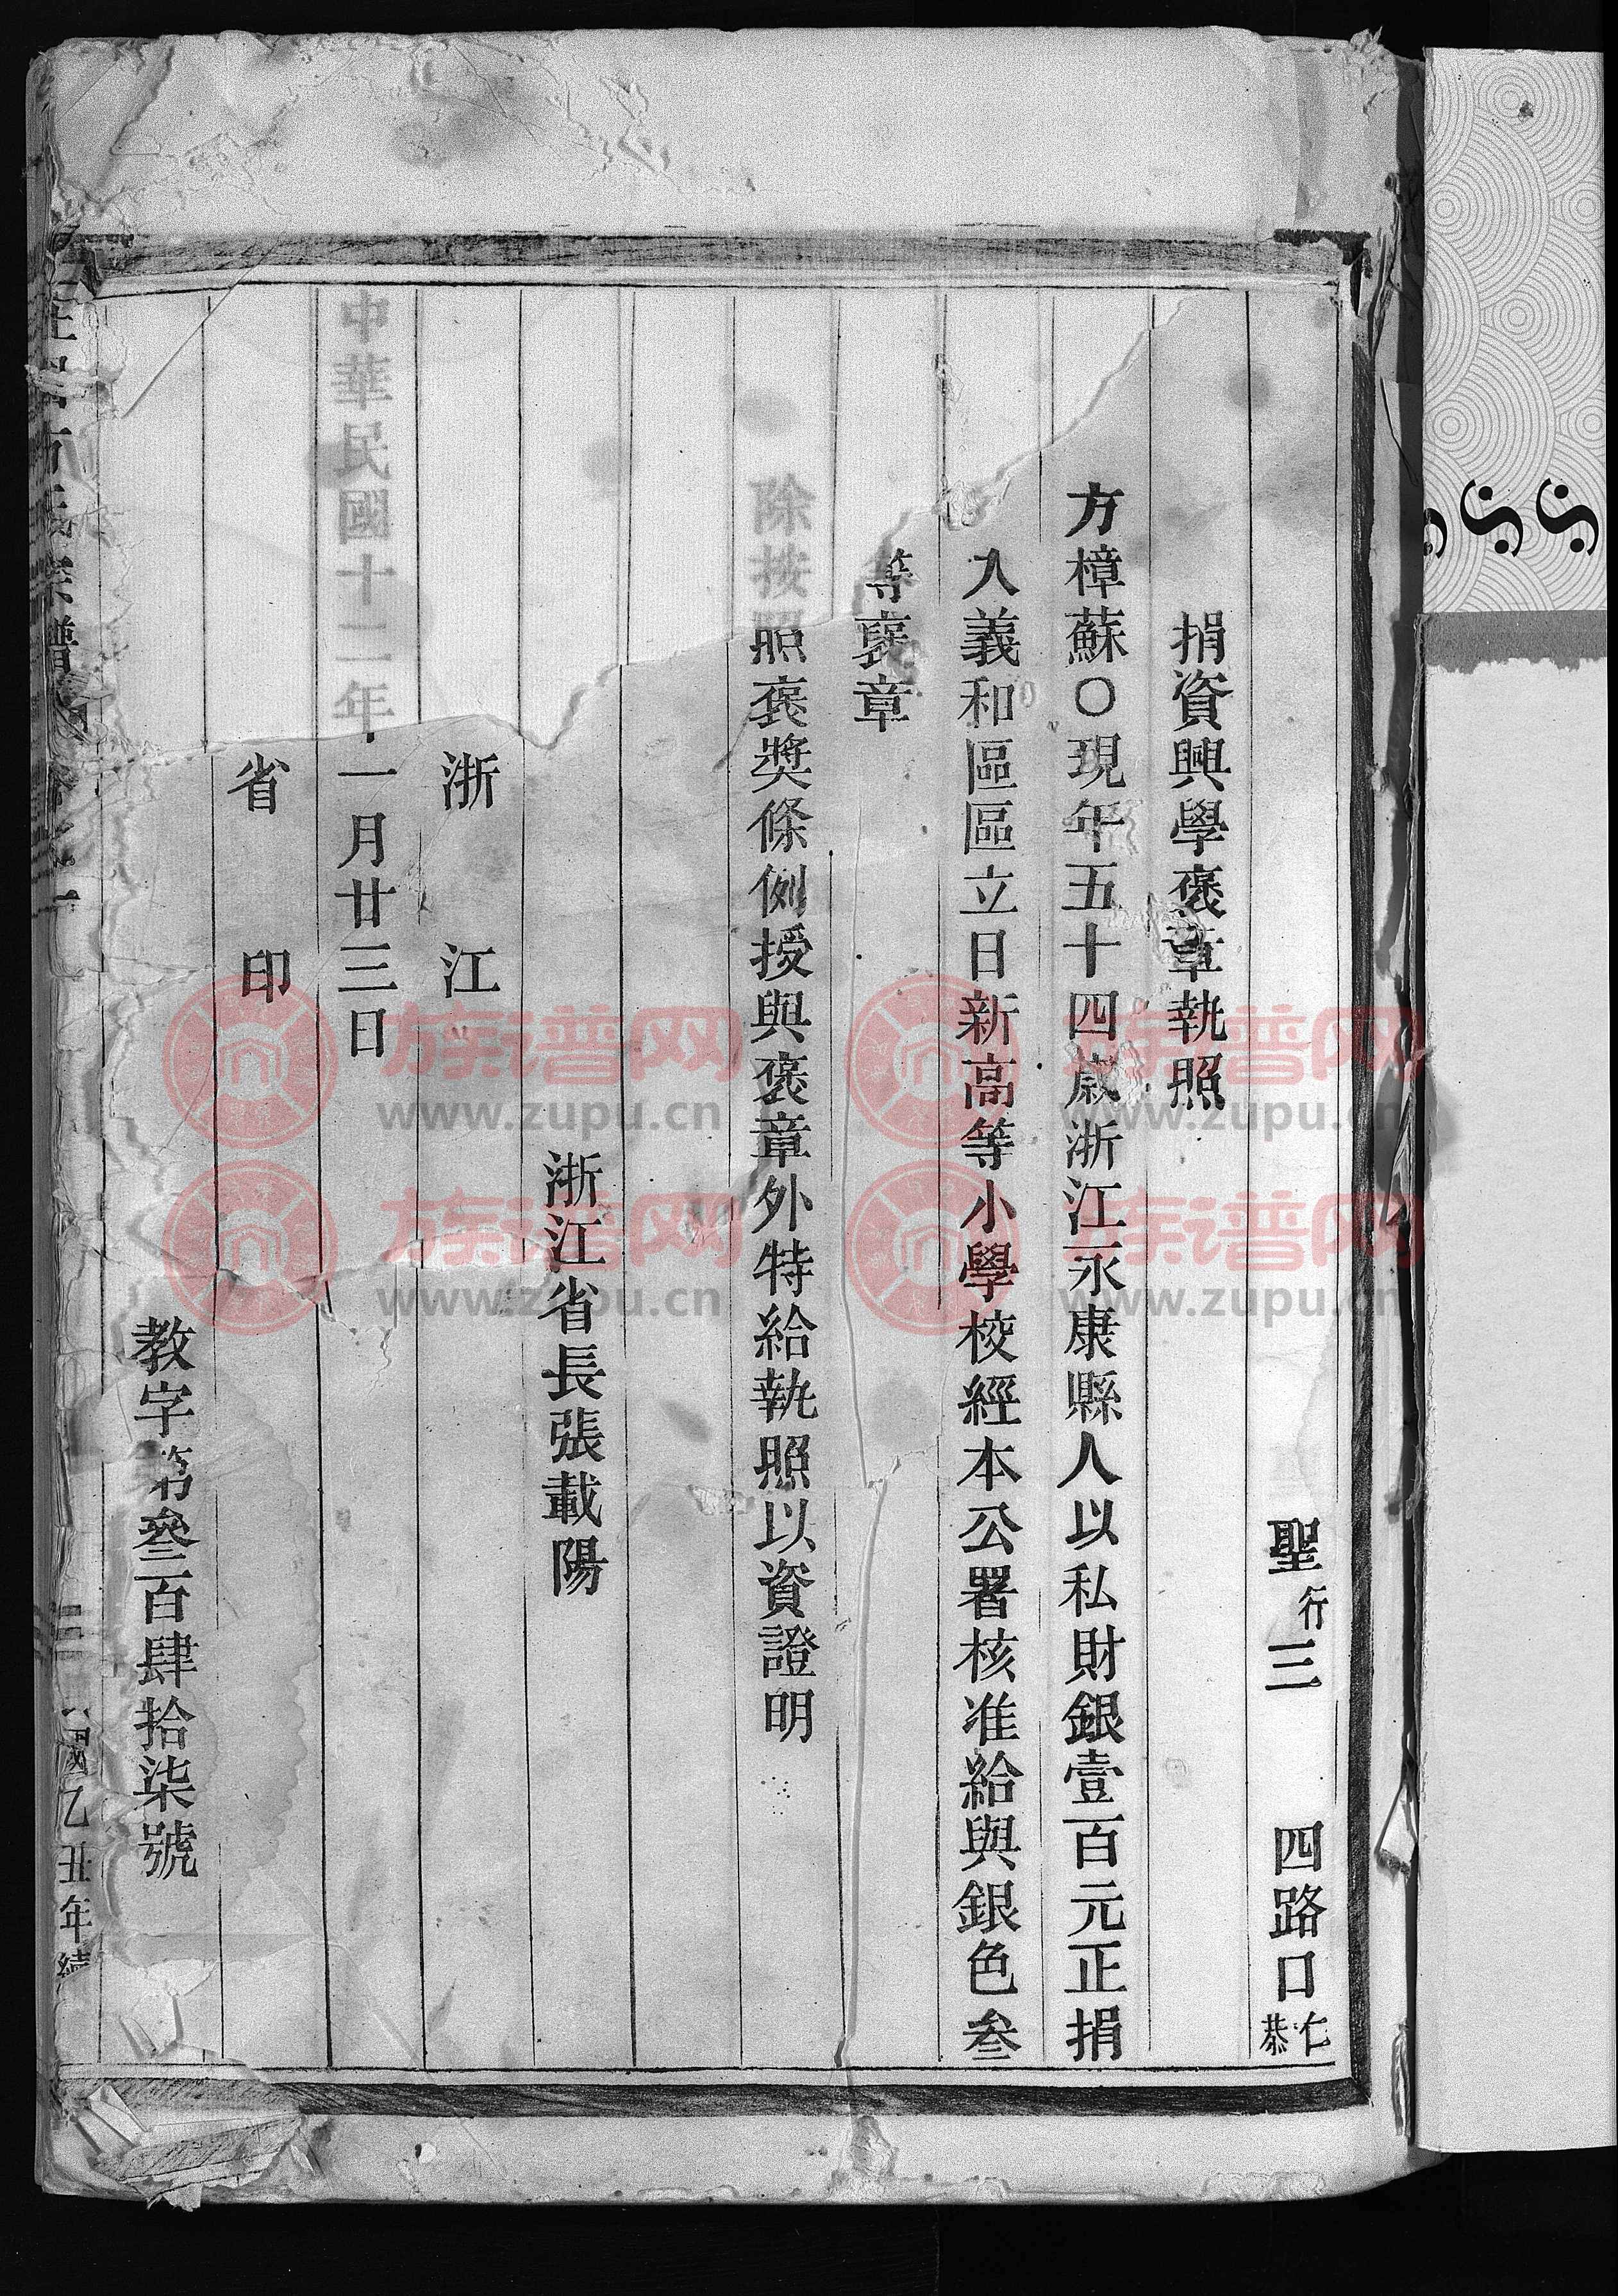 聖行三　四路口仁恭
捐資興學褒章執照
方樟蘇〇現年五十四歲浙江永康縣人以私財銀壹百元正捐
入義和區區立日新高等小學校經本公署核准給與銀色叁
等褒章
除按照褒獎條例授與褒章外特給執照以資證明
浙江省長張載陽
浙江
中華民國十二年十一月廿三日
省印
教字第叄百肆拾柒號
民國乙丑年續
族谱网
www.zupu.cn
族谱网
www.zupu.cn
族谱网
www.zupu.cn
族谱网
www.zupu.cn